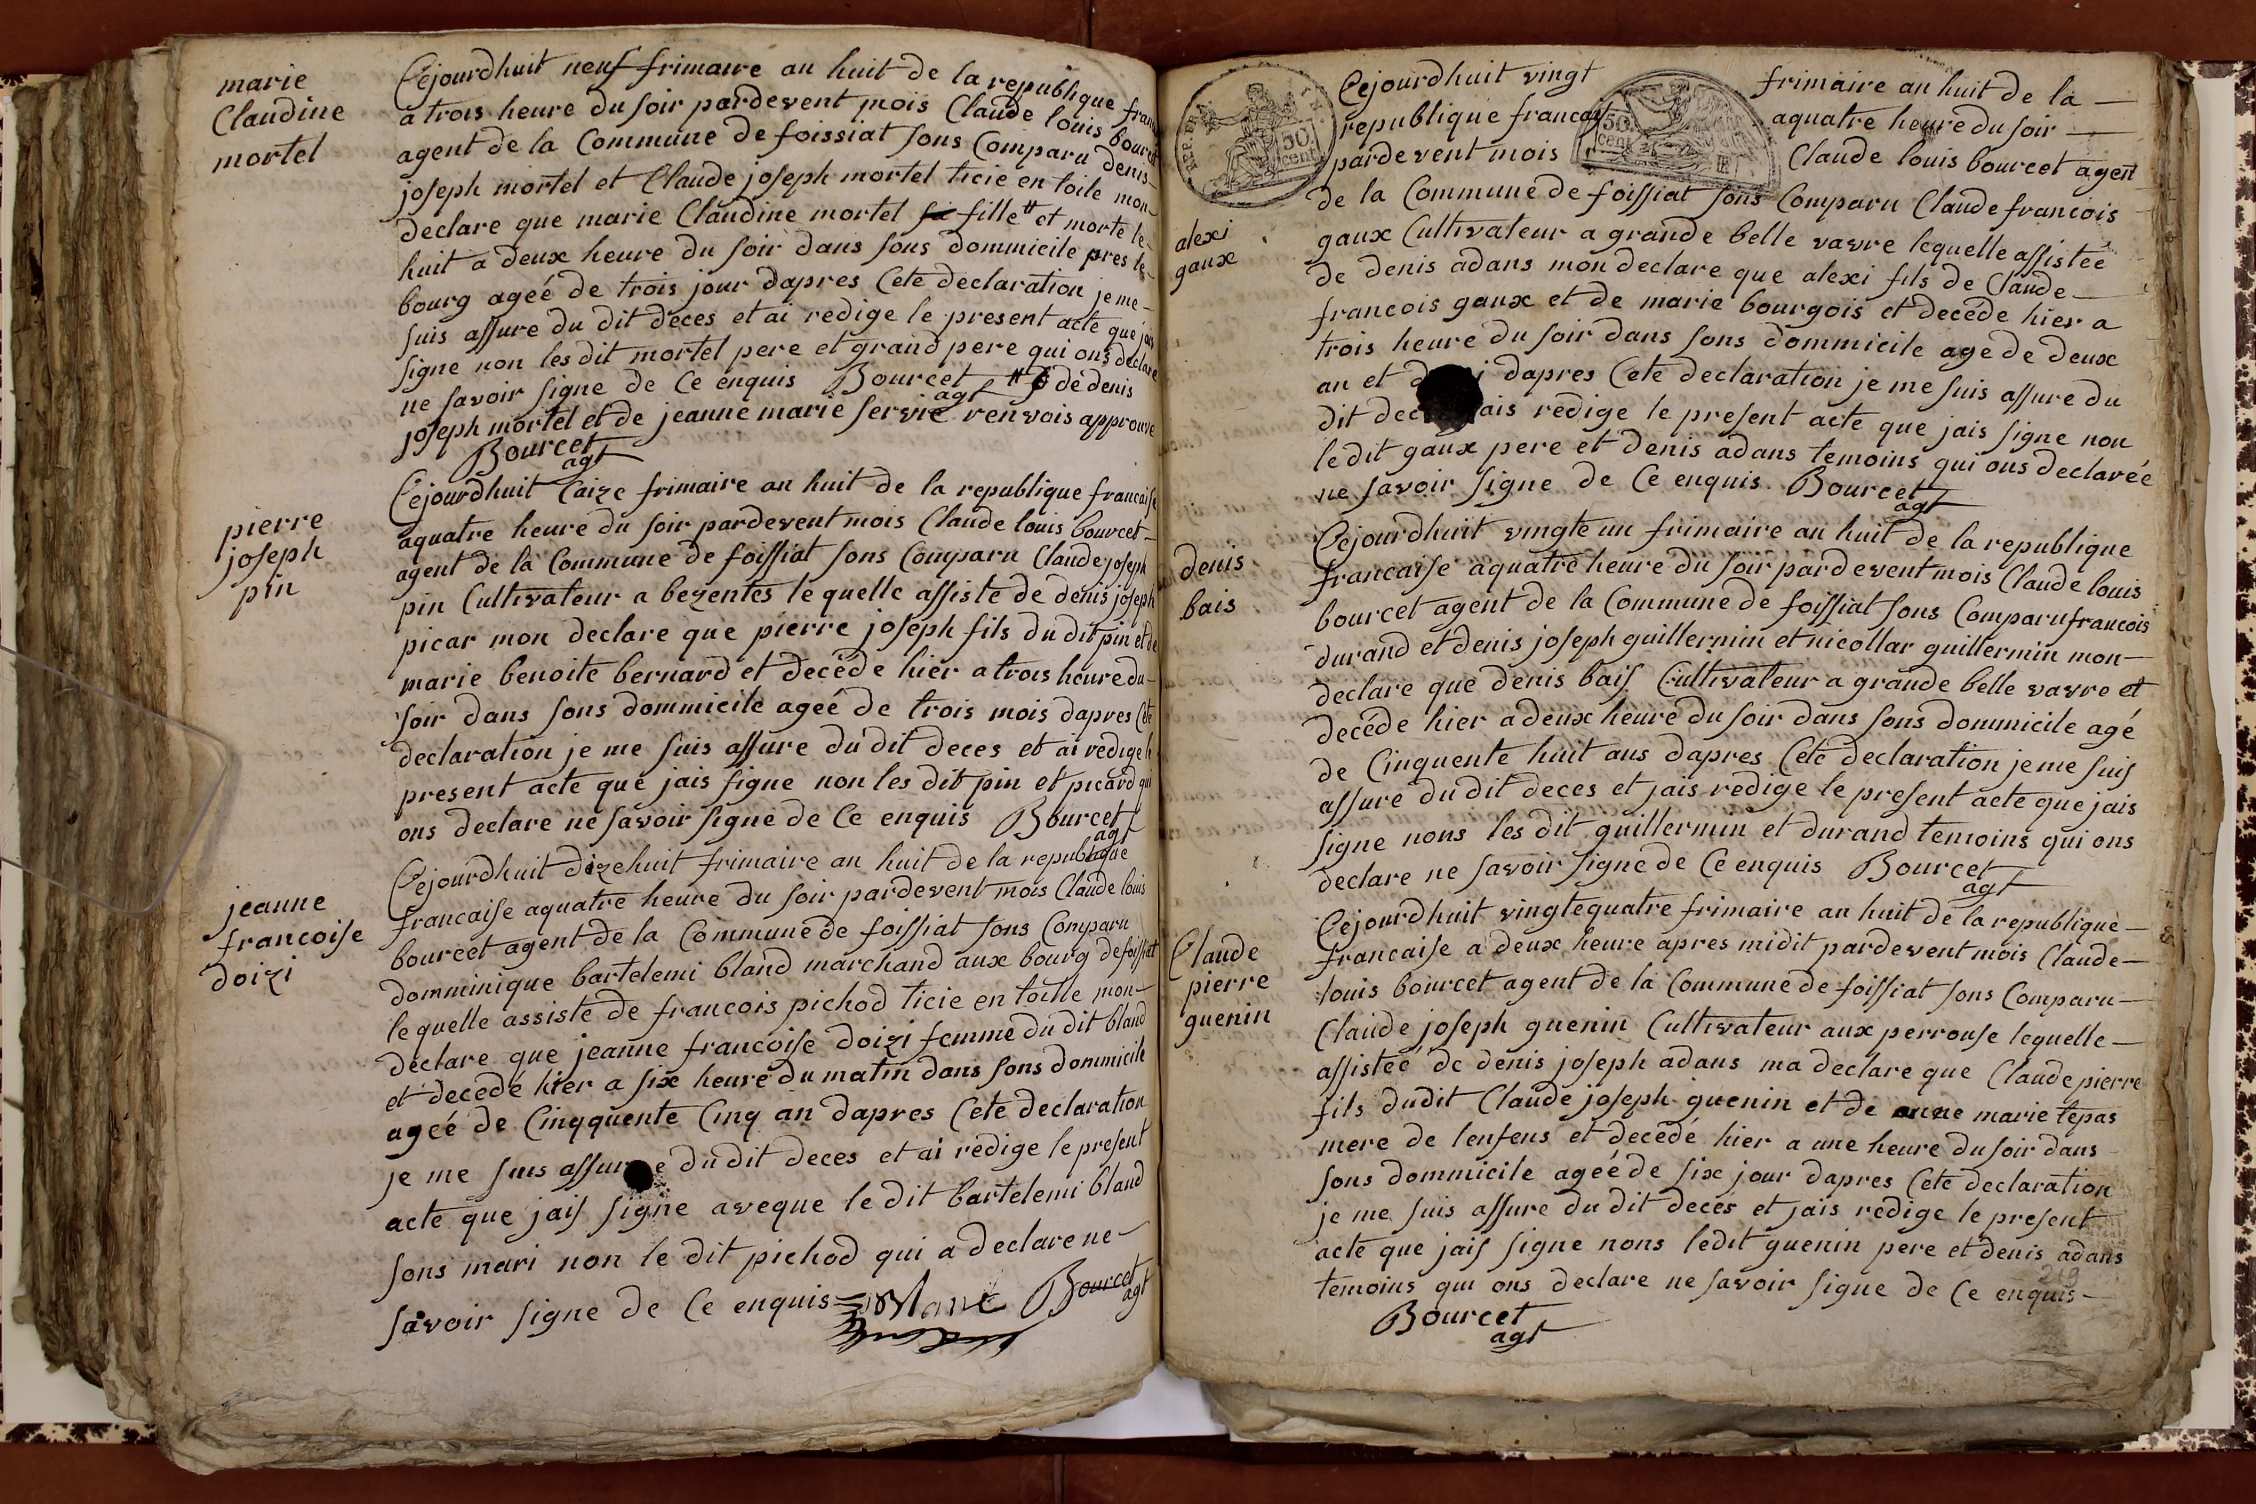 marie
Claudine
mortel
Cejourdhuit neuf frimaire an huit de la republique fran
a trois heure du soir pardevent mois Claude louis bourcet
agent de la Commune de foissiat sons Comparu denis
joseph mortel et Claude joseph mortel ticie en toile mon
declare que marie Claudine mortel fille # et morte le
huit a deux heure du soir dans sons dommicile pres le
bourg ageé de trois jour dapres Cete declaration je me
suis assure du dit deces et ai redige le present acte que jais
signe non les dit mortel pere et grand pere qui ons declare
ne savoir signe de Ce enquis Bourcet agt # de denis
joseph mortel et de jeanne marie servie renvois approuve
Bourcet
agt
pierre
joseph
pin
Cejourdhuit Caize frimaire an huit de la republique francaise
aquatre heure du soir pardevent mois Claude louis bourcet
agent de la Commune de foissiat sons Comparu Claude joseph
pin Cultivateur a bezentes le quelle assiste de denis joseph
picar mon declare que pierre joseph fils du dit pin et de
marie benoite bernard et decede hier a trois heure du
soir dans sons dommicile ageé de trois mois dapres Cete
declaration je me suis assure du dit deces et ai redige le
present acte que jais signe non les dit pin et picard qui
ons declare ne savoir signe de Ce enquis Bourcet
agt
jeanne
francoise
doizi
Cejourdhuit dizehuit frimaire an huit de la republique
francaise aquatre heure du soir pardevent mois Claude louis
bourcet agent de la Commune de foissiat sons Comparu
domminique bartelemi bland marchand aux bourg de foissiat
le quelle assiste de francois pichod ticie en toille mon
declare que jeanne francoise doizi femme du dit bland
et decede hier a six heure du matin dans sons dommicile
ageé de Cinqquente Cinq an dapres Cete declaration
je me suis assure du dit deces et ai redige le present
acte que jais signe aveque le dit bartelemi bland
sons mari non le dit pichod qui a declare ne
savoir signe de Ce enquis Bourcet
agt
Cejourdhuit vingt frimaire an huit de la
republique francais aquatre heure du soir
pardevent mois Claude louis bourcet agent
50
cent
50
cent
alexi
gaux
de la Commune de foissiat sons Comparu Claude francois
gaux Cultivateur a grande belle vavre lequelle assisteé
de denis adans mon declare que alexi fils de Claude
francois gaux et de marie bourgois et decede hier a
trois heure du soir dans sons dommicile age de deux
an et dapres Cete declaration je me suis assure du
dit jais redige le present acte que jais signe non
ledit gaux pere et denis adans temoins qui ons declareé
ne savoir signe de Ce enquis Bourcet
agt
denis
bais
Cejourdhuit vingte un frimaire an huit de la republique
francaise aquatre heure du soir pardevent mois Claude louis
bourcet agent de la Commune de foissiat sons Comparu francois
durand et denis joseph guillermin et nicollar guillermin mon
declare que denis bais Cultivateur a grande belle vavre et
decede hier adeux heure du soir dans sons dommicile agé
de Cinquente huit ans dapres Cete declaration je me suis
assure du dit deces et jais redige le present acte que jais
signe nons les dit guillermin et durand temoins qui ons
declare ne savoir signe de Ce enquis Bourcet
agt
Claude
pierre
guenin
Cejourdhuit vingtequatre frimaire an huit de la republique
francaise a deux heure apres midit pardevent mois Claude
louis bourcet agent de la Commune de foissiat sons Comparu
Claude joseph guenin Cultivateur aux perrouse lequelle
assisteé de denis joseph adans ma declare que Claude pierre
fils dudit Claude joseph guenin et de anne marie tepas
mere de lenfens et decedé hier a une heure du soir dans
sons dommicile ageé de six jour dapres Cete declaration
je me suis assure du dit deces et jais redige le present
acte que jais signe nons ledit guenin pere et denis adans
temoins qui ons declare ne savoir signe de Ce enquis
Bourcet
agt